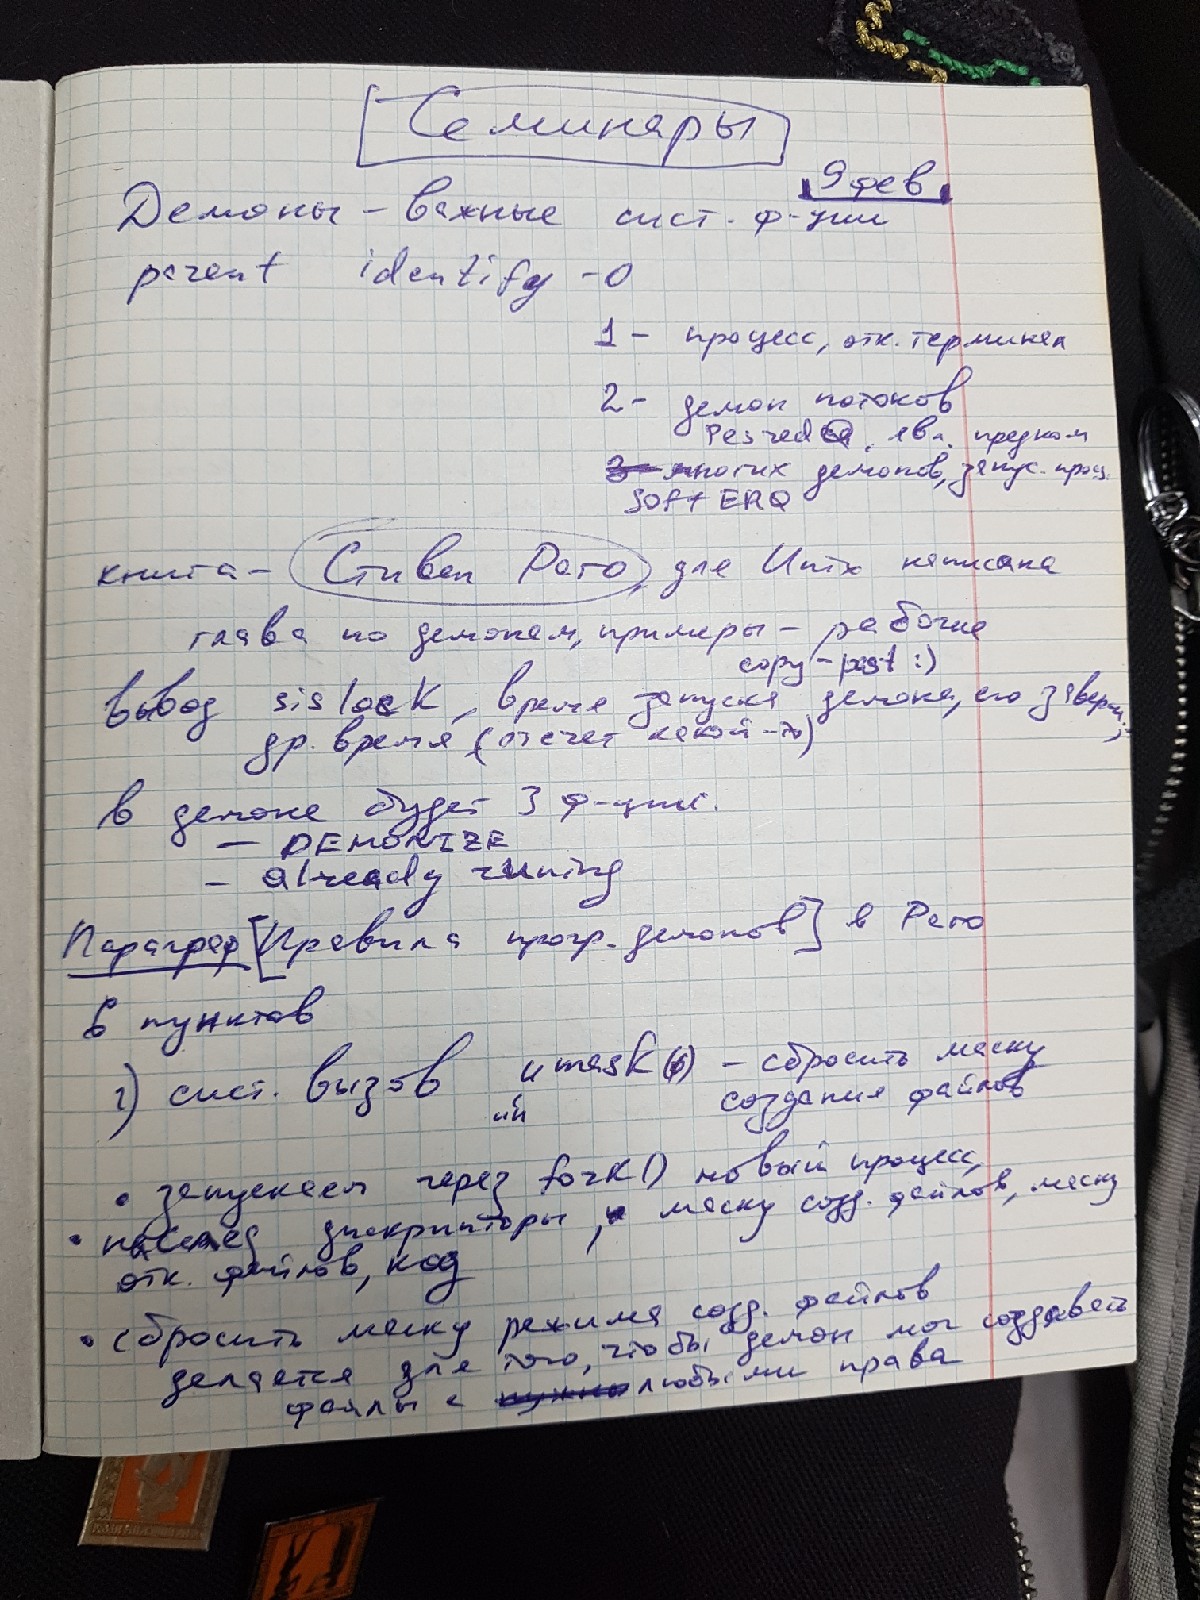 Семинары
9 фев
Демоны - важные сист. ф-ции
parent identify - 0
1 - процесс, отк. терминал
2 - демон потоков
явл. предком
3 многих демонов, запус. проц.
SOFT ERQ
книга - Стивен Раго, для Unix написана
глава по демонам, примеры - рабочие
copy-past :)
вывод sislock, время запуска демона, его заверш.,
др. время (отсчет какой-то)
в демоне будет 3 ф-ции.
- DEMONIZE
- already runing
Параграф [Правила прогр. демонов] в Раго
6 пунктов
1) сист. вызов umask() - сбросить маску
ый создания файлов
• запускаем через fork() новый процесс,
• наслед дискрипторы, маску созд. файлов, маску
отк. файлов, код
• сбросить маску режима созд. файлов
делается для того, чтобы демон мог создавать
файлы с любыми права